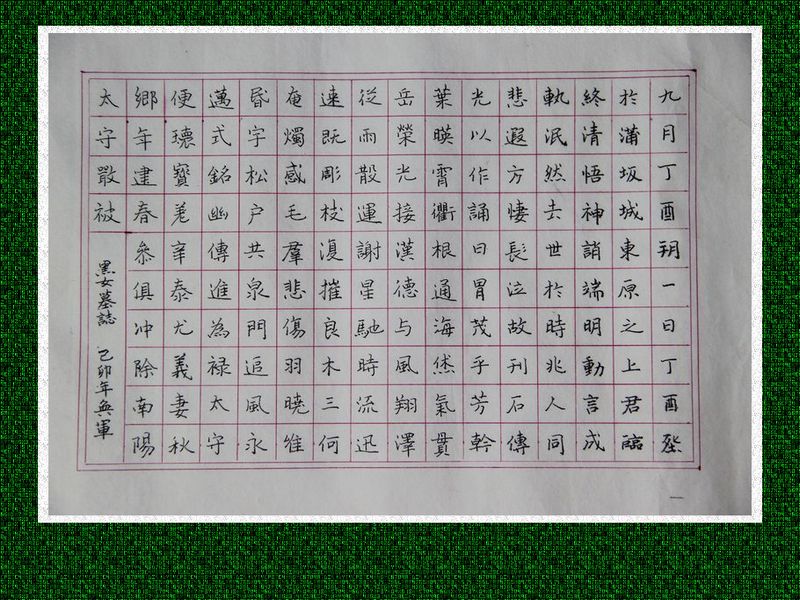 九月丁酉朔一日丁酉塟
於蒲坂城東原之上君臨
終清悟神誚端明動言成
軌泯然去世於時兆人同
悲遐方悽長泣故刊石傳
光以作誦曰胄茂乎芳幹
葉暎霄衢根通海氣貫
岳榮光接漢德与風翔澤
從雨散運謝星馳時流迅
速既彫枝復摧良木三何
奄燭感毛羣悲傷羽曉惟
昏宇松戶共泉門追風永
邁式銘幽傳進為祿太守
便瓌寶辛泰尤義妻秋
鄉年建春叅俱冲除南陽
太守被
黑女墓誌 己卯年軍